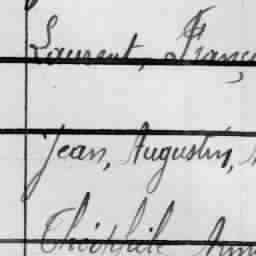 Laurent, Franço
Jean, Augustin,
Théophile